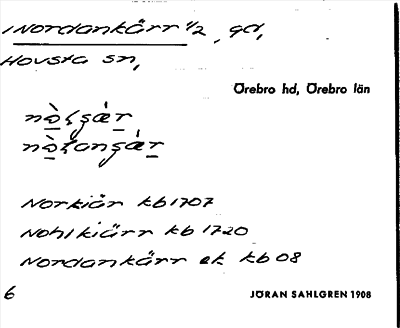 1 Nordankärr 1/2, gd,
Hovsta sn,
Örebro hd, Örebro län
Norkiär kb 1707
Nohlkiärr kb 1720
Nordankärr ek kb 08
6
JÖRAN SAHLGREN 1908